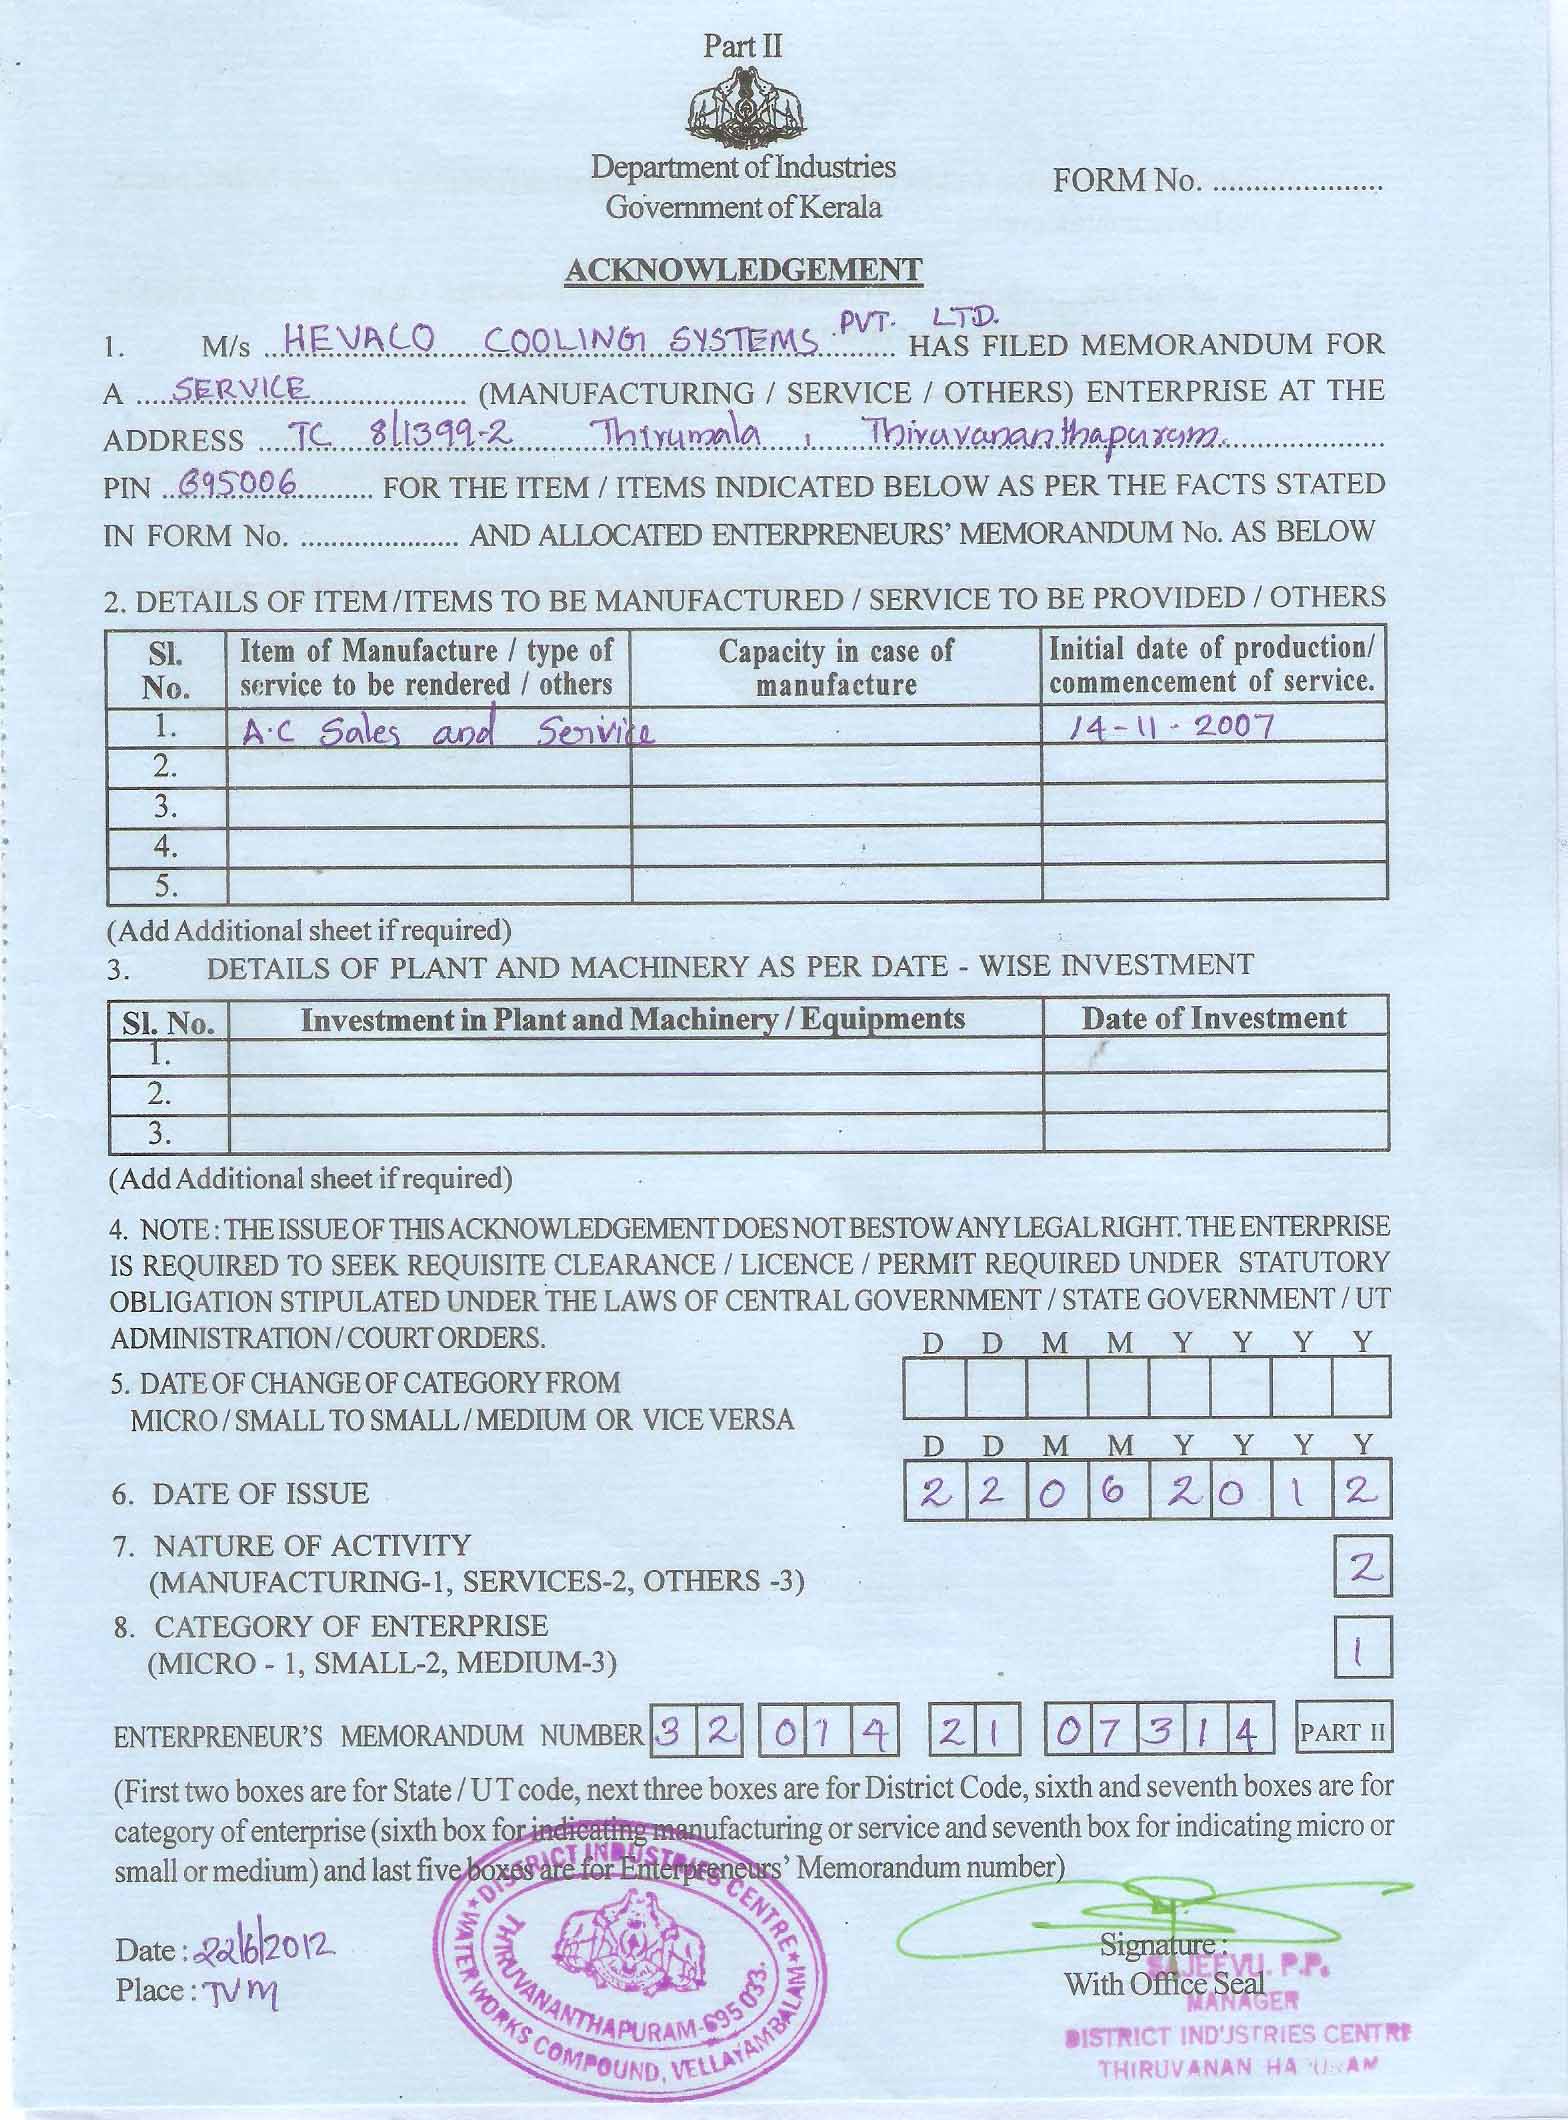 Part II
Department of Industries
Government of Kerala
FORM No. ......................
ACKNOWLEDGEMENT
1. M/s HEVACO COOLING SYSTEMS PVT. LTD. HAS FILED MEMORANDUM FOR
A SERVICE (MANUFACTURING / SERVICE / OTHERS) ENTERPRISE AT THE
ADDRESS TC 8/1399-2 Thirumala, Thiruvananthapuram
PIN 695006 FOR THE ITEM / ITEMS INDICATED BELOW AS PER THE FACTS STATED
IN FORM No. ..................... AND ALLOCATED ENTERPRENEURS' MEMORANDUM No. AS BELOW
2. DETAILS OF ITEM/ITEMS TO BE MANUFACTURED / SERVICE TO BE PROVIDED / OTHERS
Sl. No. Item of Manufacture / type of service to be rendered / others Capacity in case of manufacture Initial date of production/ commencement of service.
1. A.C Sales and Service 14-11-2007
2.
3.
4.
5.
(Add Additional sheet if required)
3. DETAILS OF PLANT AND MACHINERY AS PER DATE - WISE INVESTMENT
Sl. No. Investment in Plant and Machinery / Equipments Date of Investment
1.
2.
3.
(Add Additional sheet if required)
4. NOTE : THE ISSUE OF THIS ACKNOWLEDGEMENT DOES NOT BESTOW ANY LEGAL RIGHT. THE ENTERPRISE
IS REQUIRED TO SEEK REQUISITE CLEARANCE / LICENCE / PERMIT REQUIRED UNDER STATUTORY
OBLIGATION STIPULATED UNDER THE LAWS OF CENTRAL GOVERNMENT / STATE GOVERNMENT / UT
ADMINISTRATION / COURT ORDERS.
D D M M Y Y Y Y
5. DATE OF CHANGE OF CATEGORY FROM
MICRO / SMALL TO SMALL / MEDIUM OR VICE VERSA
D D M M Y Y Y Y
6. DATE OF ISSUE 2 2 0 6 2 0 1 2
7. NATURE OF ACTIVITY
(MANUFACTURING-1, SERVICES-2, OTHERS -3) 2
8. CATEGORY OF ENTERPRISE
(MICRO - 1, SMALL-2, MEDIUM-3) 1
ENTERPRENEUR'S MEMORANDUM NUMBER 3 2 0 1 4 2 1 0 7 3 1 4 PART II
(First two boxes are for State / UT code, next three boxes are for District Code, sixth and seventh boxes are for
category of enterprise (sixth box for indicating manufacturing or service and seventh box for indicating micro or
small or medium) and last five boxes are for Enterpreneurs' Memorandum number)
DISTRICT INDUSTRIES CENTRE
THIRUVANANTHAPURAM-695 033.
WATER WORKS COMPOUND, VELLAYAMBALAM
Date : 22/6/2012
Place : TVM
Signature :
With Office Seal
SAJEEVU. P.P.
MANAGER
DISTRICT INDUSTRIES CENTRE
THIRUVANANTHAPURAM